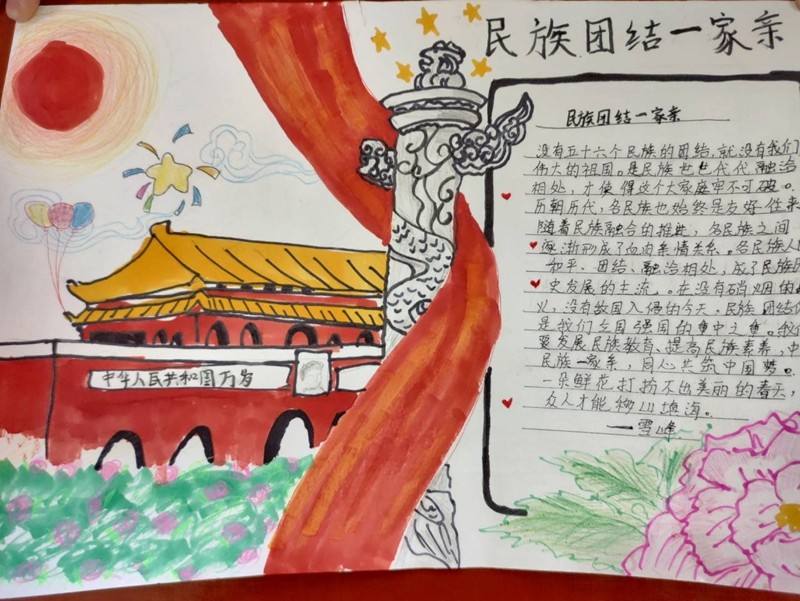 民族团结一家亲
民族团结一家亲
没有五十六个民族的团结,就没有我们
伟大的祖国。是民族世世代代融洽
相处,才使得这个大家庭牢不可破。
历朝历代,各民族也始终是友好往来
随着民族融合的推进,各民族之间
逐渐形成了血肉亲情关系。各民族人
和平、团结、融洽相处,成了民族
史发展的主流。在没有硝烟的
义,没有敌国入侵的今天,民族团结
是我们立国强国的重中之重。我
要发展民族教育、提高民族素养,中
民族一家亲,同心共筑中国梦。
一朵鲜花打扮不出美丽的春天,
众人才能移山填海。
一雪峰
中华人民共和国万岁